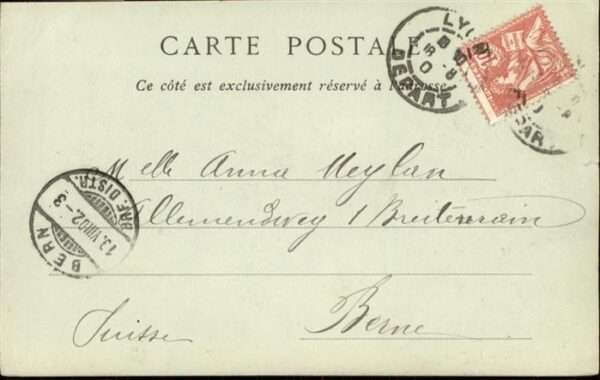 CARTE POSTALE
Ce côté est exclusivement réservé à l'adresse
LYON
DEPART
10
Melle Anna Meylan
Allemendweg 1 Breitenrain
Berne
Suisse
BERN
BRF. DISTR.
13.VIII.02-3